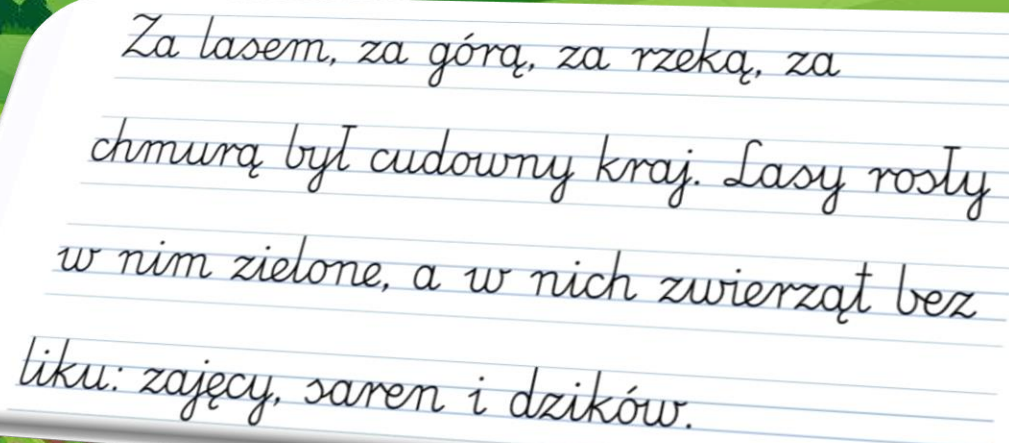 Za lasem, za górą, za rzeką, za
chmurą był cudowny kraj. Lasy rosły
w nim zielone, a w nich zwierząt bez
liku: zajęcy, saren i dzików.